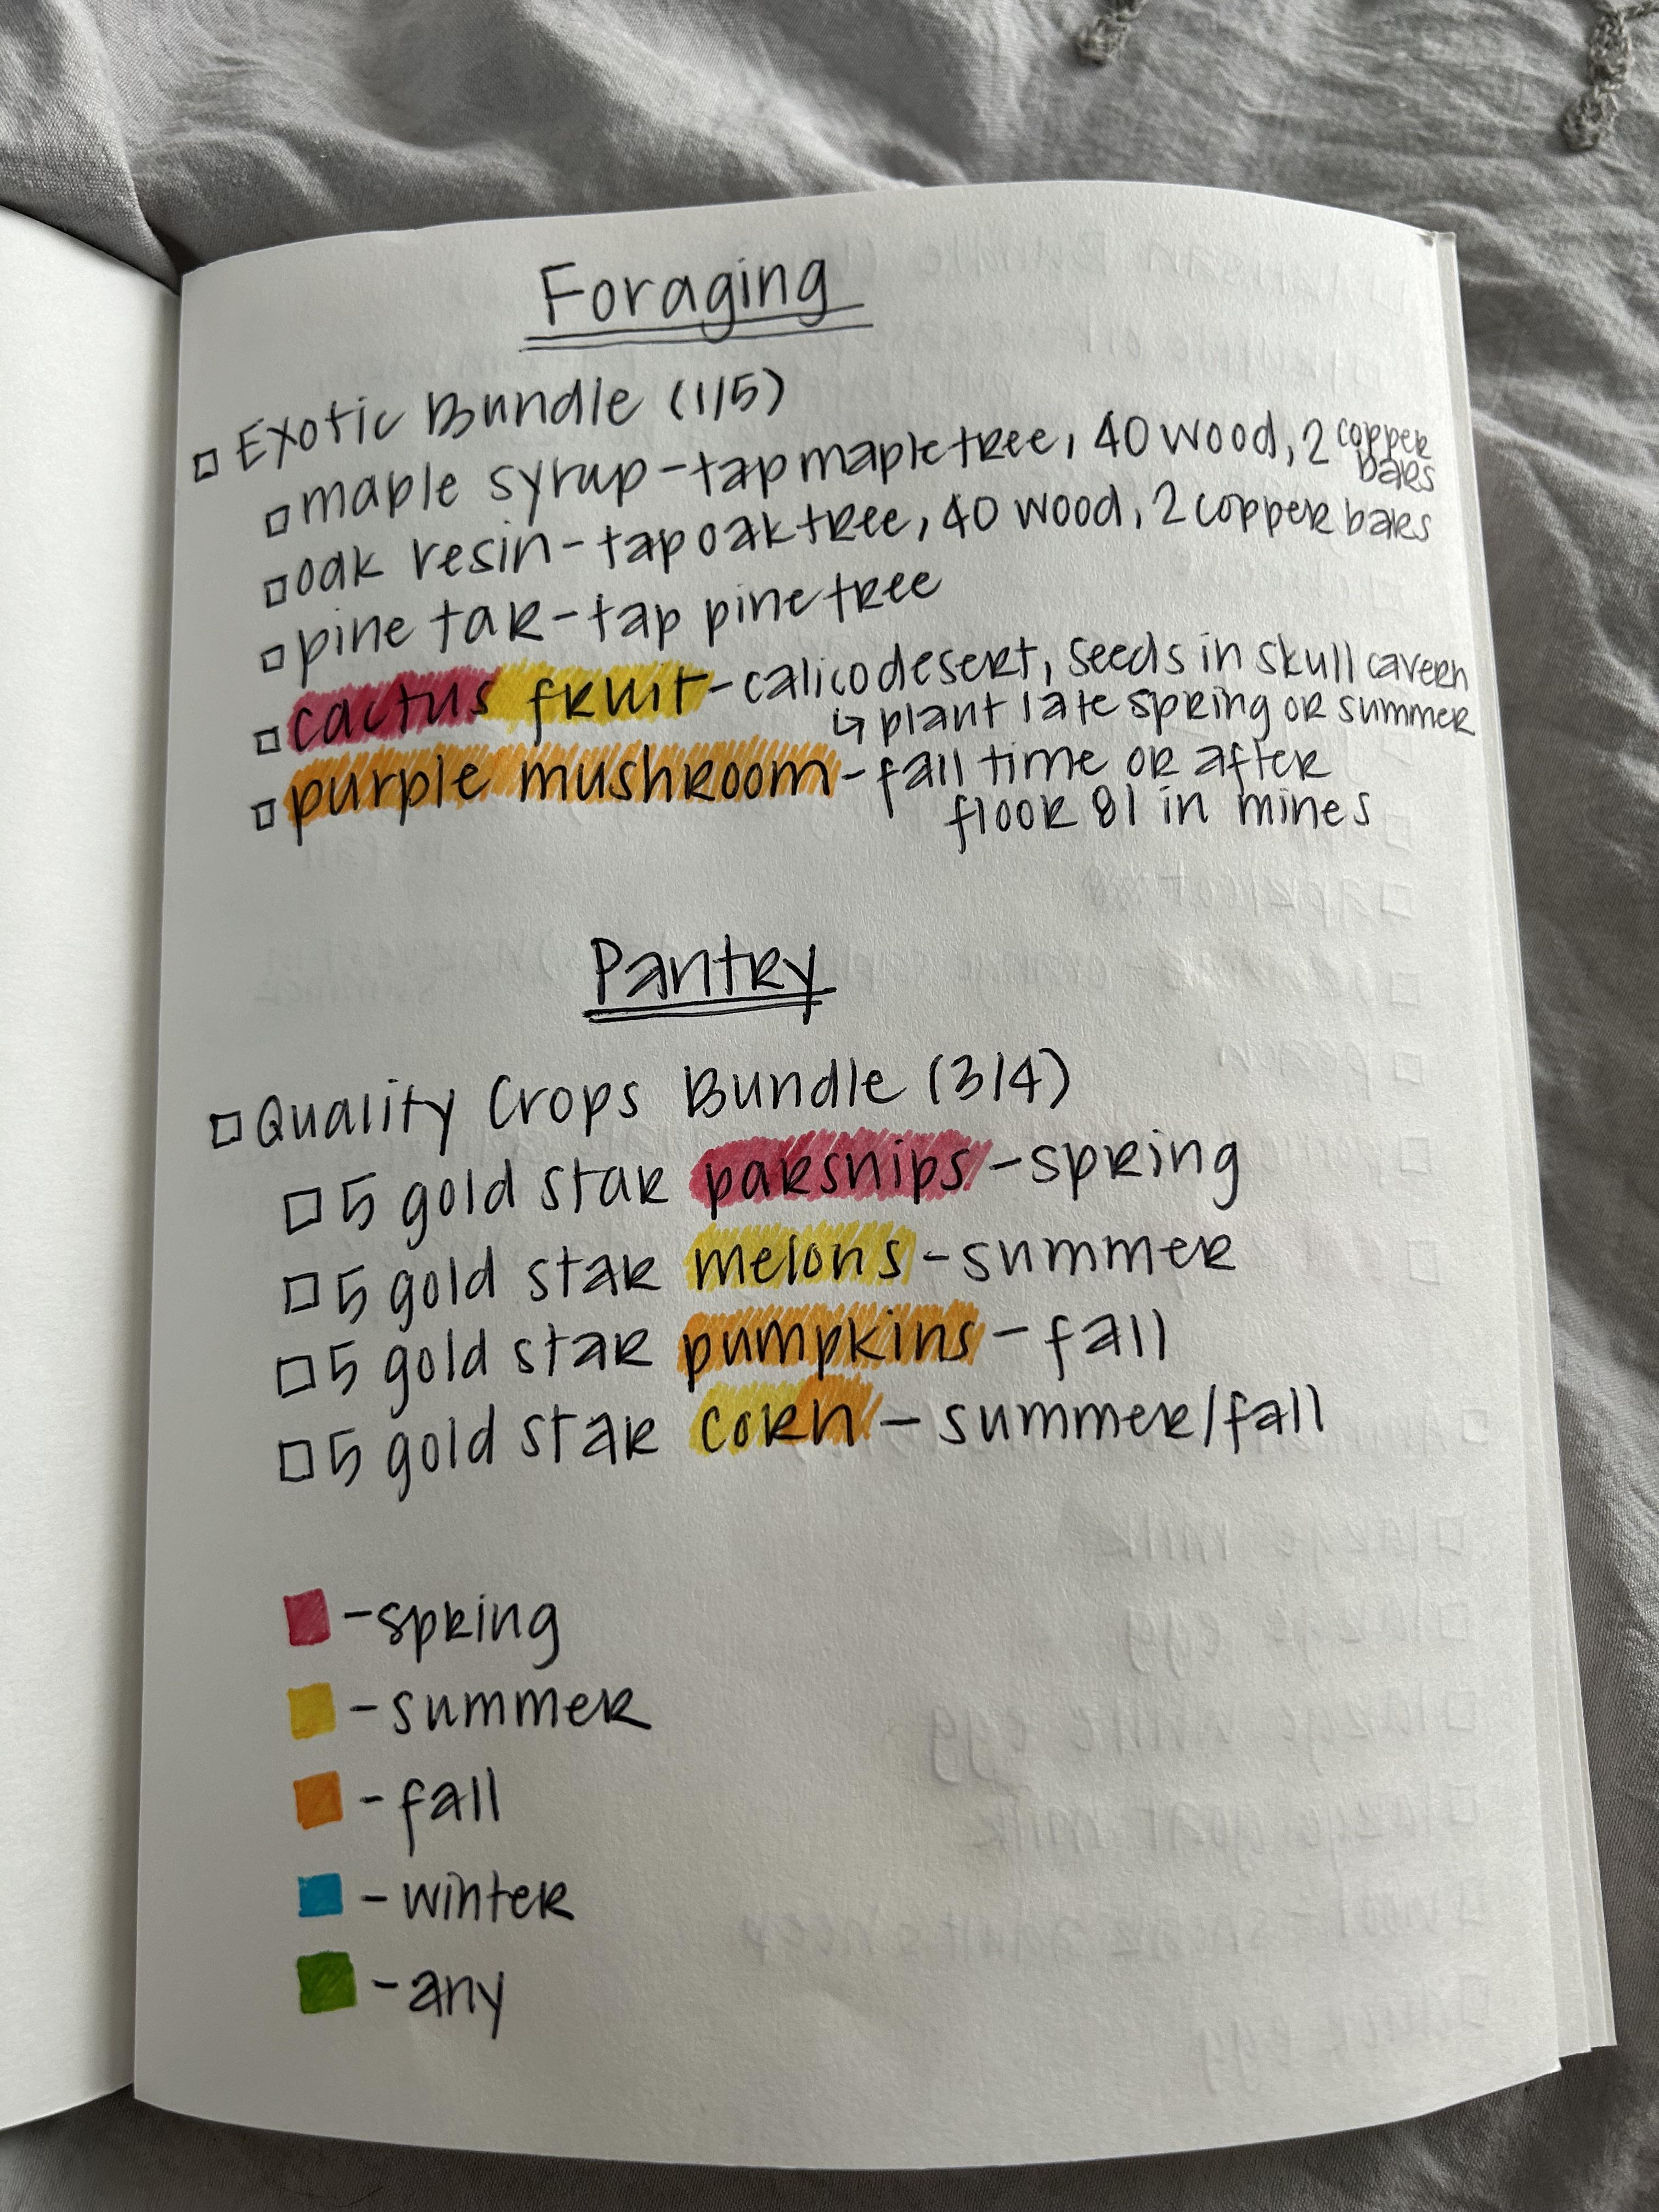 Foraging
Exotic Bundle (1/5)
maple syrup - tap maple tree, 40 wood, 2 copper bars
oak resin - tap oak tree, 40 wood, 2 copper bars
pine tar - tap pine tree
cactus fruit - calico desert, seeds in skull cavern
↳ plant late spring or summer
purple mushroom - fall time or after
floor 81 in mines
Pantry
Quality Crops Bundle (3/4)
5 gold star parsnips - spring
5 gold star melons - summer
5 gold star pumpkins - fall
5 gold star corn - summer/fall
- spring
- summer
- fall
- winter
- any